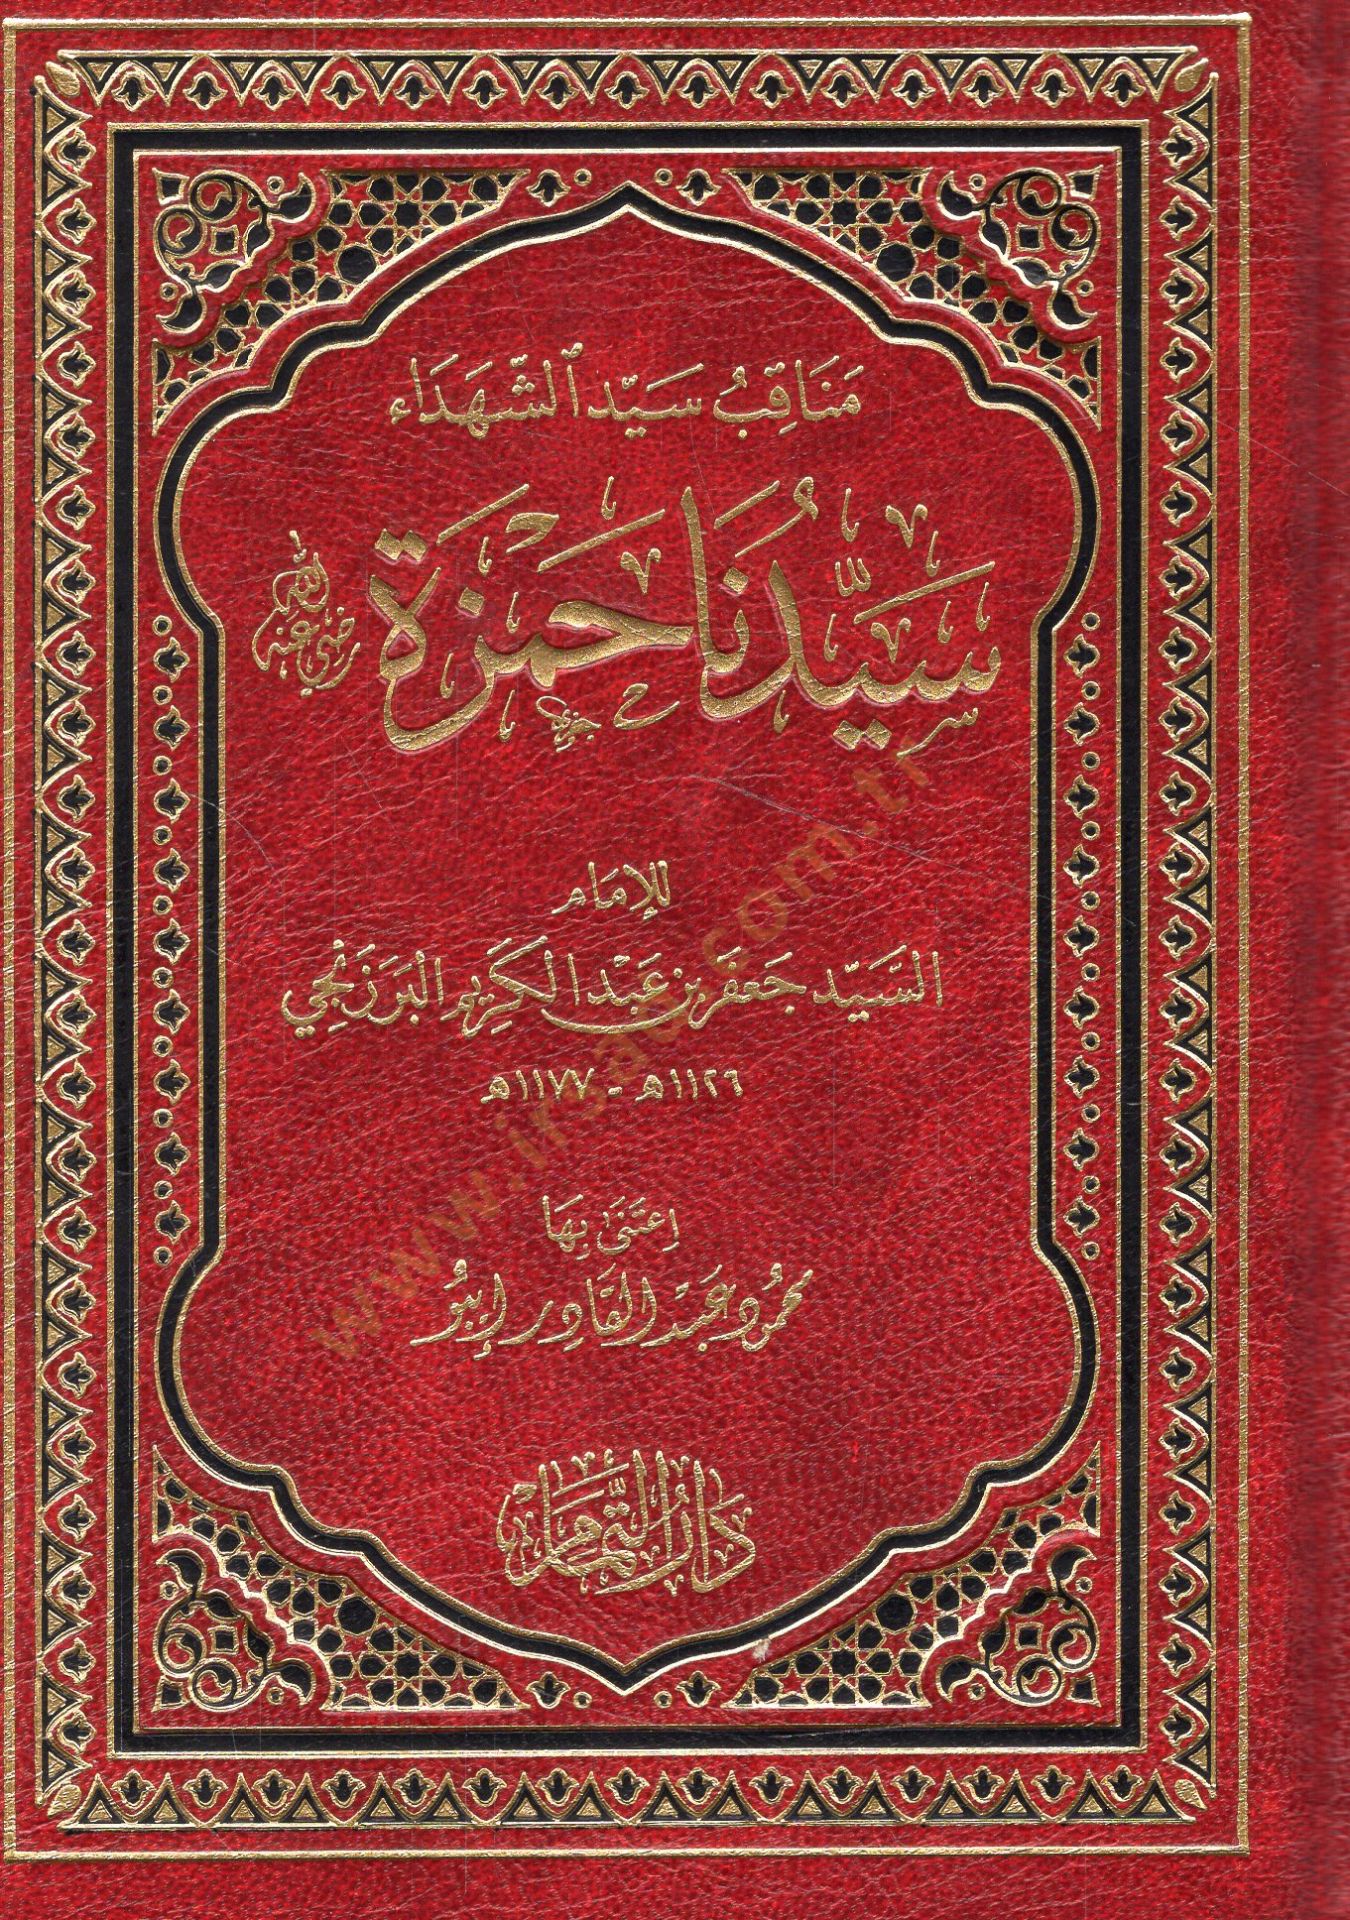 مَنَاقِبُ سَيِّد ٱلشُّهَدَاء
سَيِّدُنَا حَمْزَة رَضِيَ اللهُ عَنْهُ
للإمَام
السَّيِّد جَعْفَر بْن عَبْد الكَرِيم البَرْزَنْجِي
١١٢٦هـ - ١١٧٧هـ
اعْتَنَى بِهَا
محمُود عَبْد القَادِر إيبُو
دَارُ السَّمَّام
www.irsad.com.tr